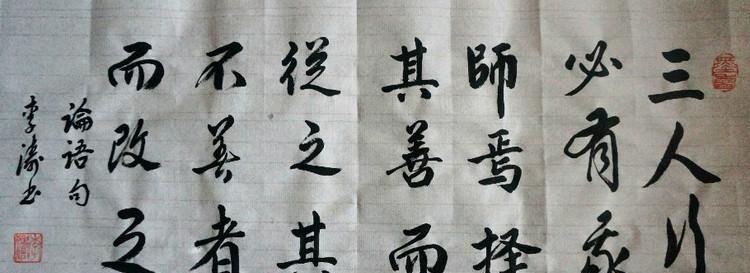 三人行
必有我
師焉择
其善而
從之其
不善者
而改之
論語句
李濤书